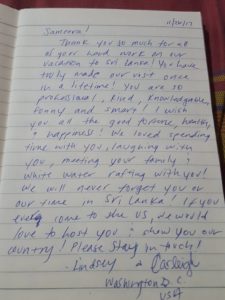 11/24/17
Sameera!
Thank you so much for all
of your hard work on our
vacation to Sri Lanka! You have
truly made our visit once
in a lifetime! You are so
professional, kind, knowledgable,
funny and smart! I wish
you all the good fortune, health,
& happiness! We loved spending
time with you, laughing with
you, meeting your family &
white water rafting with you!
We will never forget you or
our time in Sri Lanka! If you
ever come to the US, we would
love to host you & show you our
country! Please stay in touch!
- Lindsey & Carleigh
Washington D.C.
USA